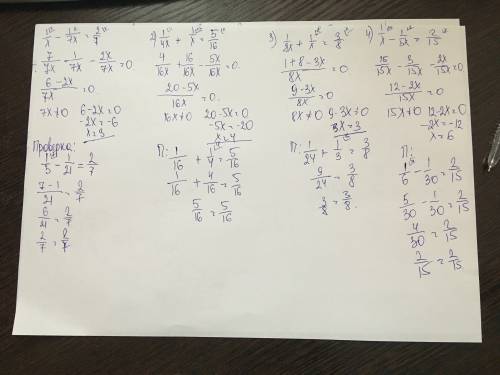 1/x - 1/7x = 2/7
7/7x - 1/7x - 2x/7x = 0
6-2x/7x = 0
7x≠0 6-2x=0
-2x=-6
x=3
Проверка:
1/3 - 1/21 = 2/7
7-1/21 = 2/7
6/21 = 2/7
2/7 = 2/7
2) 1/4x + 1/x = 5/16
4/16x + 16/16x - 5x/16x = 0
20-5x/16x = 0
16x≠0 20-5x=0
-5x=-20
x=4
П:
1/16 + 1/4 = 5/16
1/16 + 4/16 = 5/16
5/16 = 5/16
3) 1/8x + 1/x = 3/8
1+8-3x/8x = 0
9-3x/8x = 0
8x≠0 9-3x=0
x=3
П:
1/24 + 1/3 = 3/8
9/24 = 3/8
3/8 = 3/8
4) 1/x - 1/5x = 2/15
15/15x - 3/15x - 2x/15x = 0
12-2x/15x = 0
15x≠0 12-2x=0
-2x=-12
x=6
П:
1/6 - 1/30 = 2/15
5/30 - 1/30 = 2/15
4/30 = 2/15
2/15 = 2/15